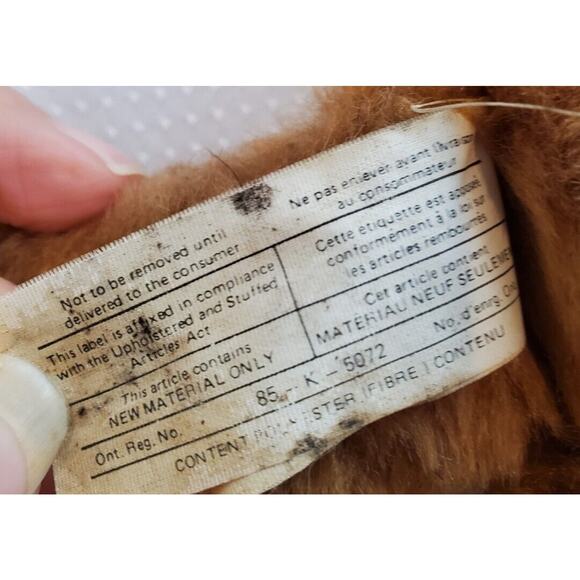 Not to be removed until
delivered to the consumer
Ne pas enlever avant livraison
au consommateur
This label is affixed in compliance
with the Upholstered and Stuffed
Articles Act
Cette étiquette est apposée
conformément à la loi sur
les articles rembourrés
This article contains
NEW MATERIAL ONLY
Cet article contient
MATÉRIAU NEUF SEULEMENT
Ont. Reg. No. 85 - K - 5072 No. d'enrg. Ont
CONTENT POLYESTER (FIBRE) CONTENU